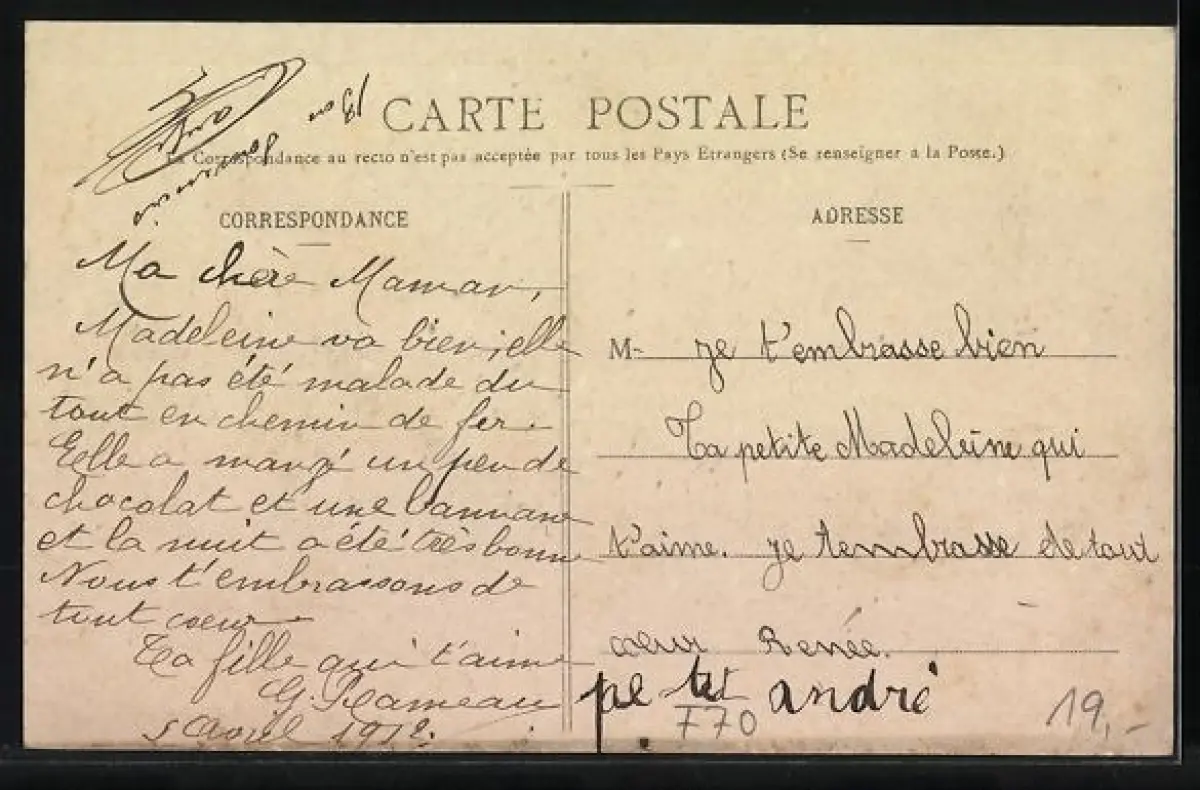 CARTE POSTALE
La Correspondance au recto n'est pas acceptée par tous les Pays Etrangers (Se renseigner a la Poste.)
CORRESPONDANCE
Ma chère Maman,
Madeleine va bien, elle
n'a pas été malade du
tout en chemin de fer.
Eelle a mangé un peu de
chocolat et une bannane
et la nuit a été très bonne
Nous t'embrassons de
tout coeur
Ta fille qui t'aime
G. Rameau
5 Avril 1912.
ADRESSE
M je t'embrasse bien
Ta petite Madeleine qui
t'aime. je tembrasse de tout
cœur Renée.
pe tit andré
F70
19,-